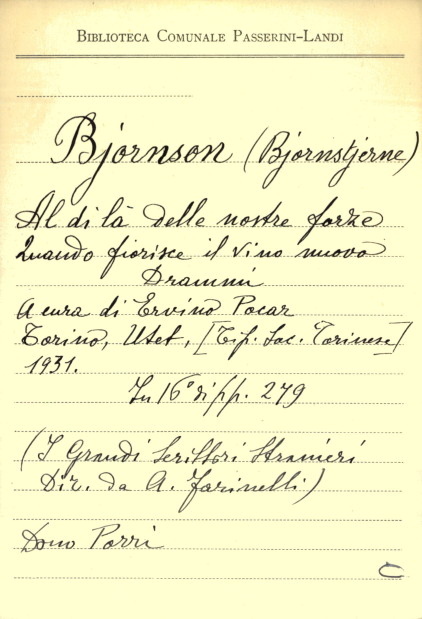 BIBLIOTECA COMUNALE PASSERINI-LANDI
Bjornson (Bjornstjerne)
Al di là delle nostre forze
Quando fiorisce il vino nuovo
Drammi
A cura di Ervino Pocar
Torino, Utet, [Tip. Soc. Torinese]
1931.
In 16° di pp. 279
(I Grandi Scrittori Stranieri
Dir. da A. Farinelli)
Dono Porri
C